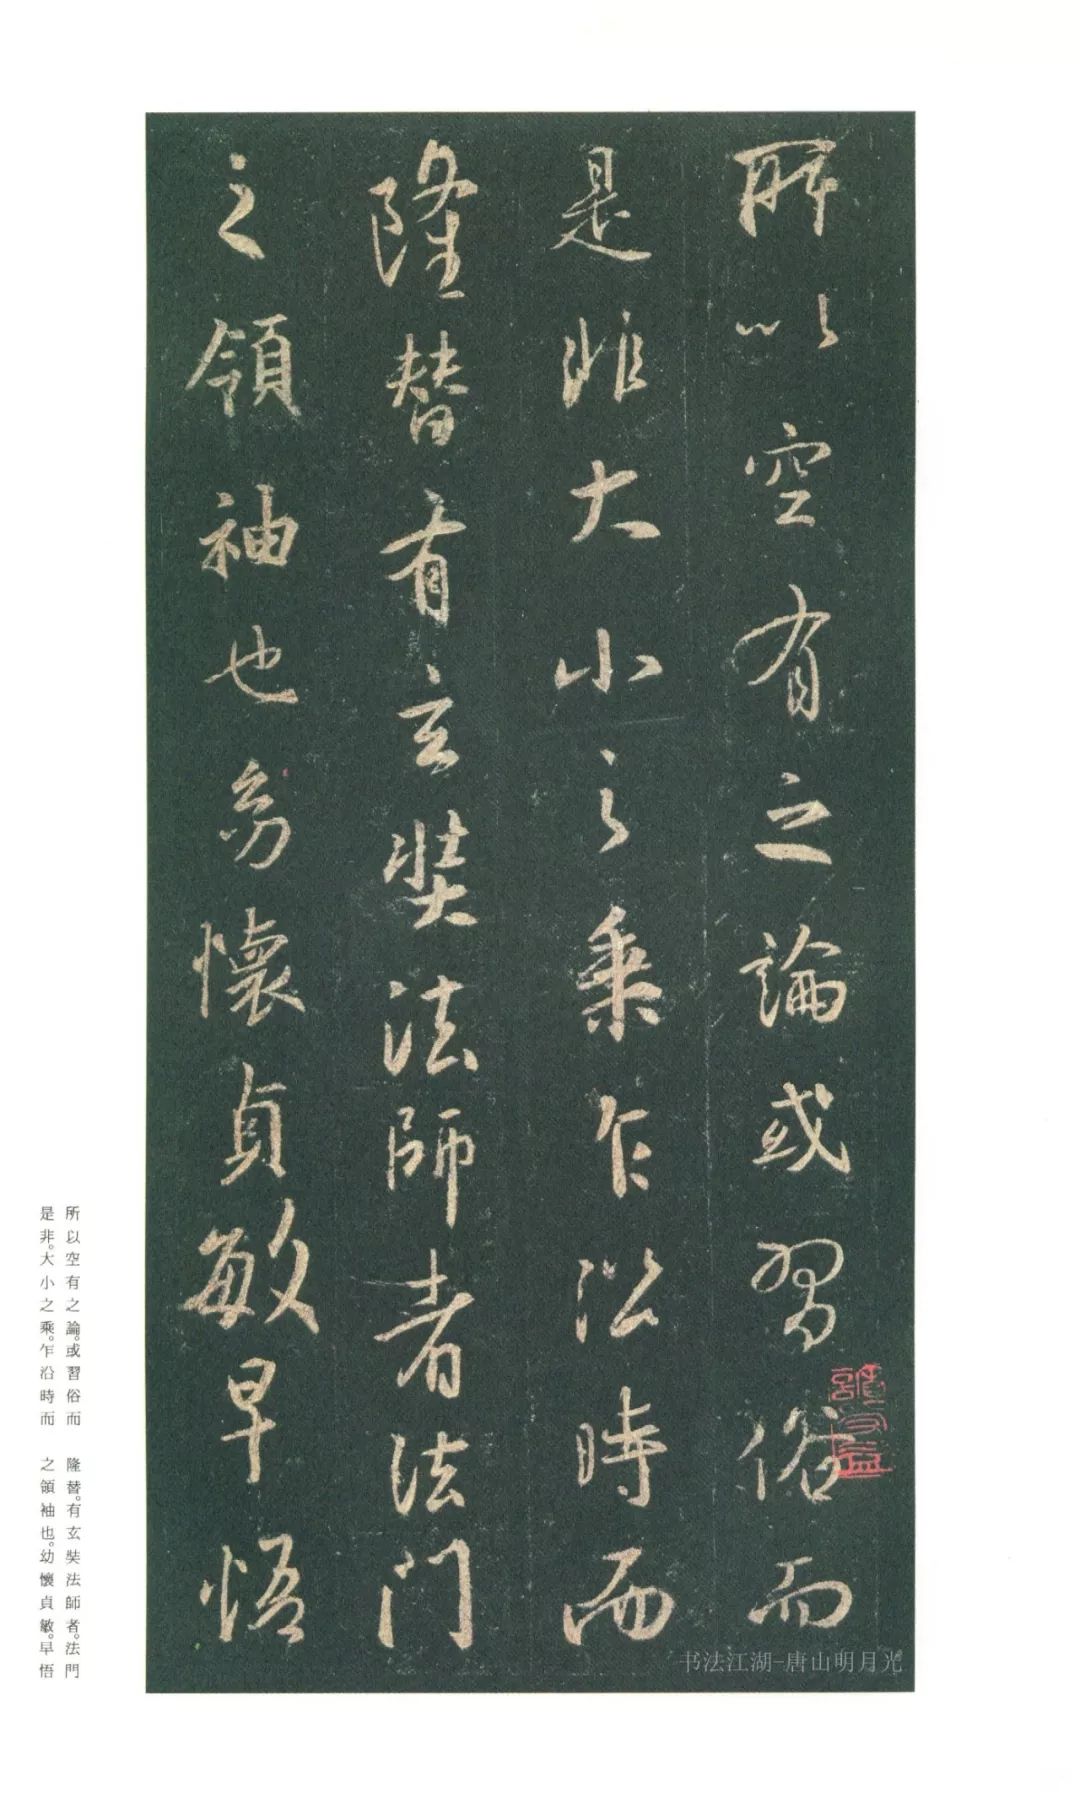 所以空有之論或習俗而
是非大小之乘乍沿時而
隆替有玄奘法師者法門
之領袖也幼懷貞敏早悟
书法江湖-唐山明月光
所以空有之論。或習俗而
是非。大小之乘。乍沿時而
隆替。有玄奘法師者。法門
之領袖也。幼懷貞敏。早悟